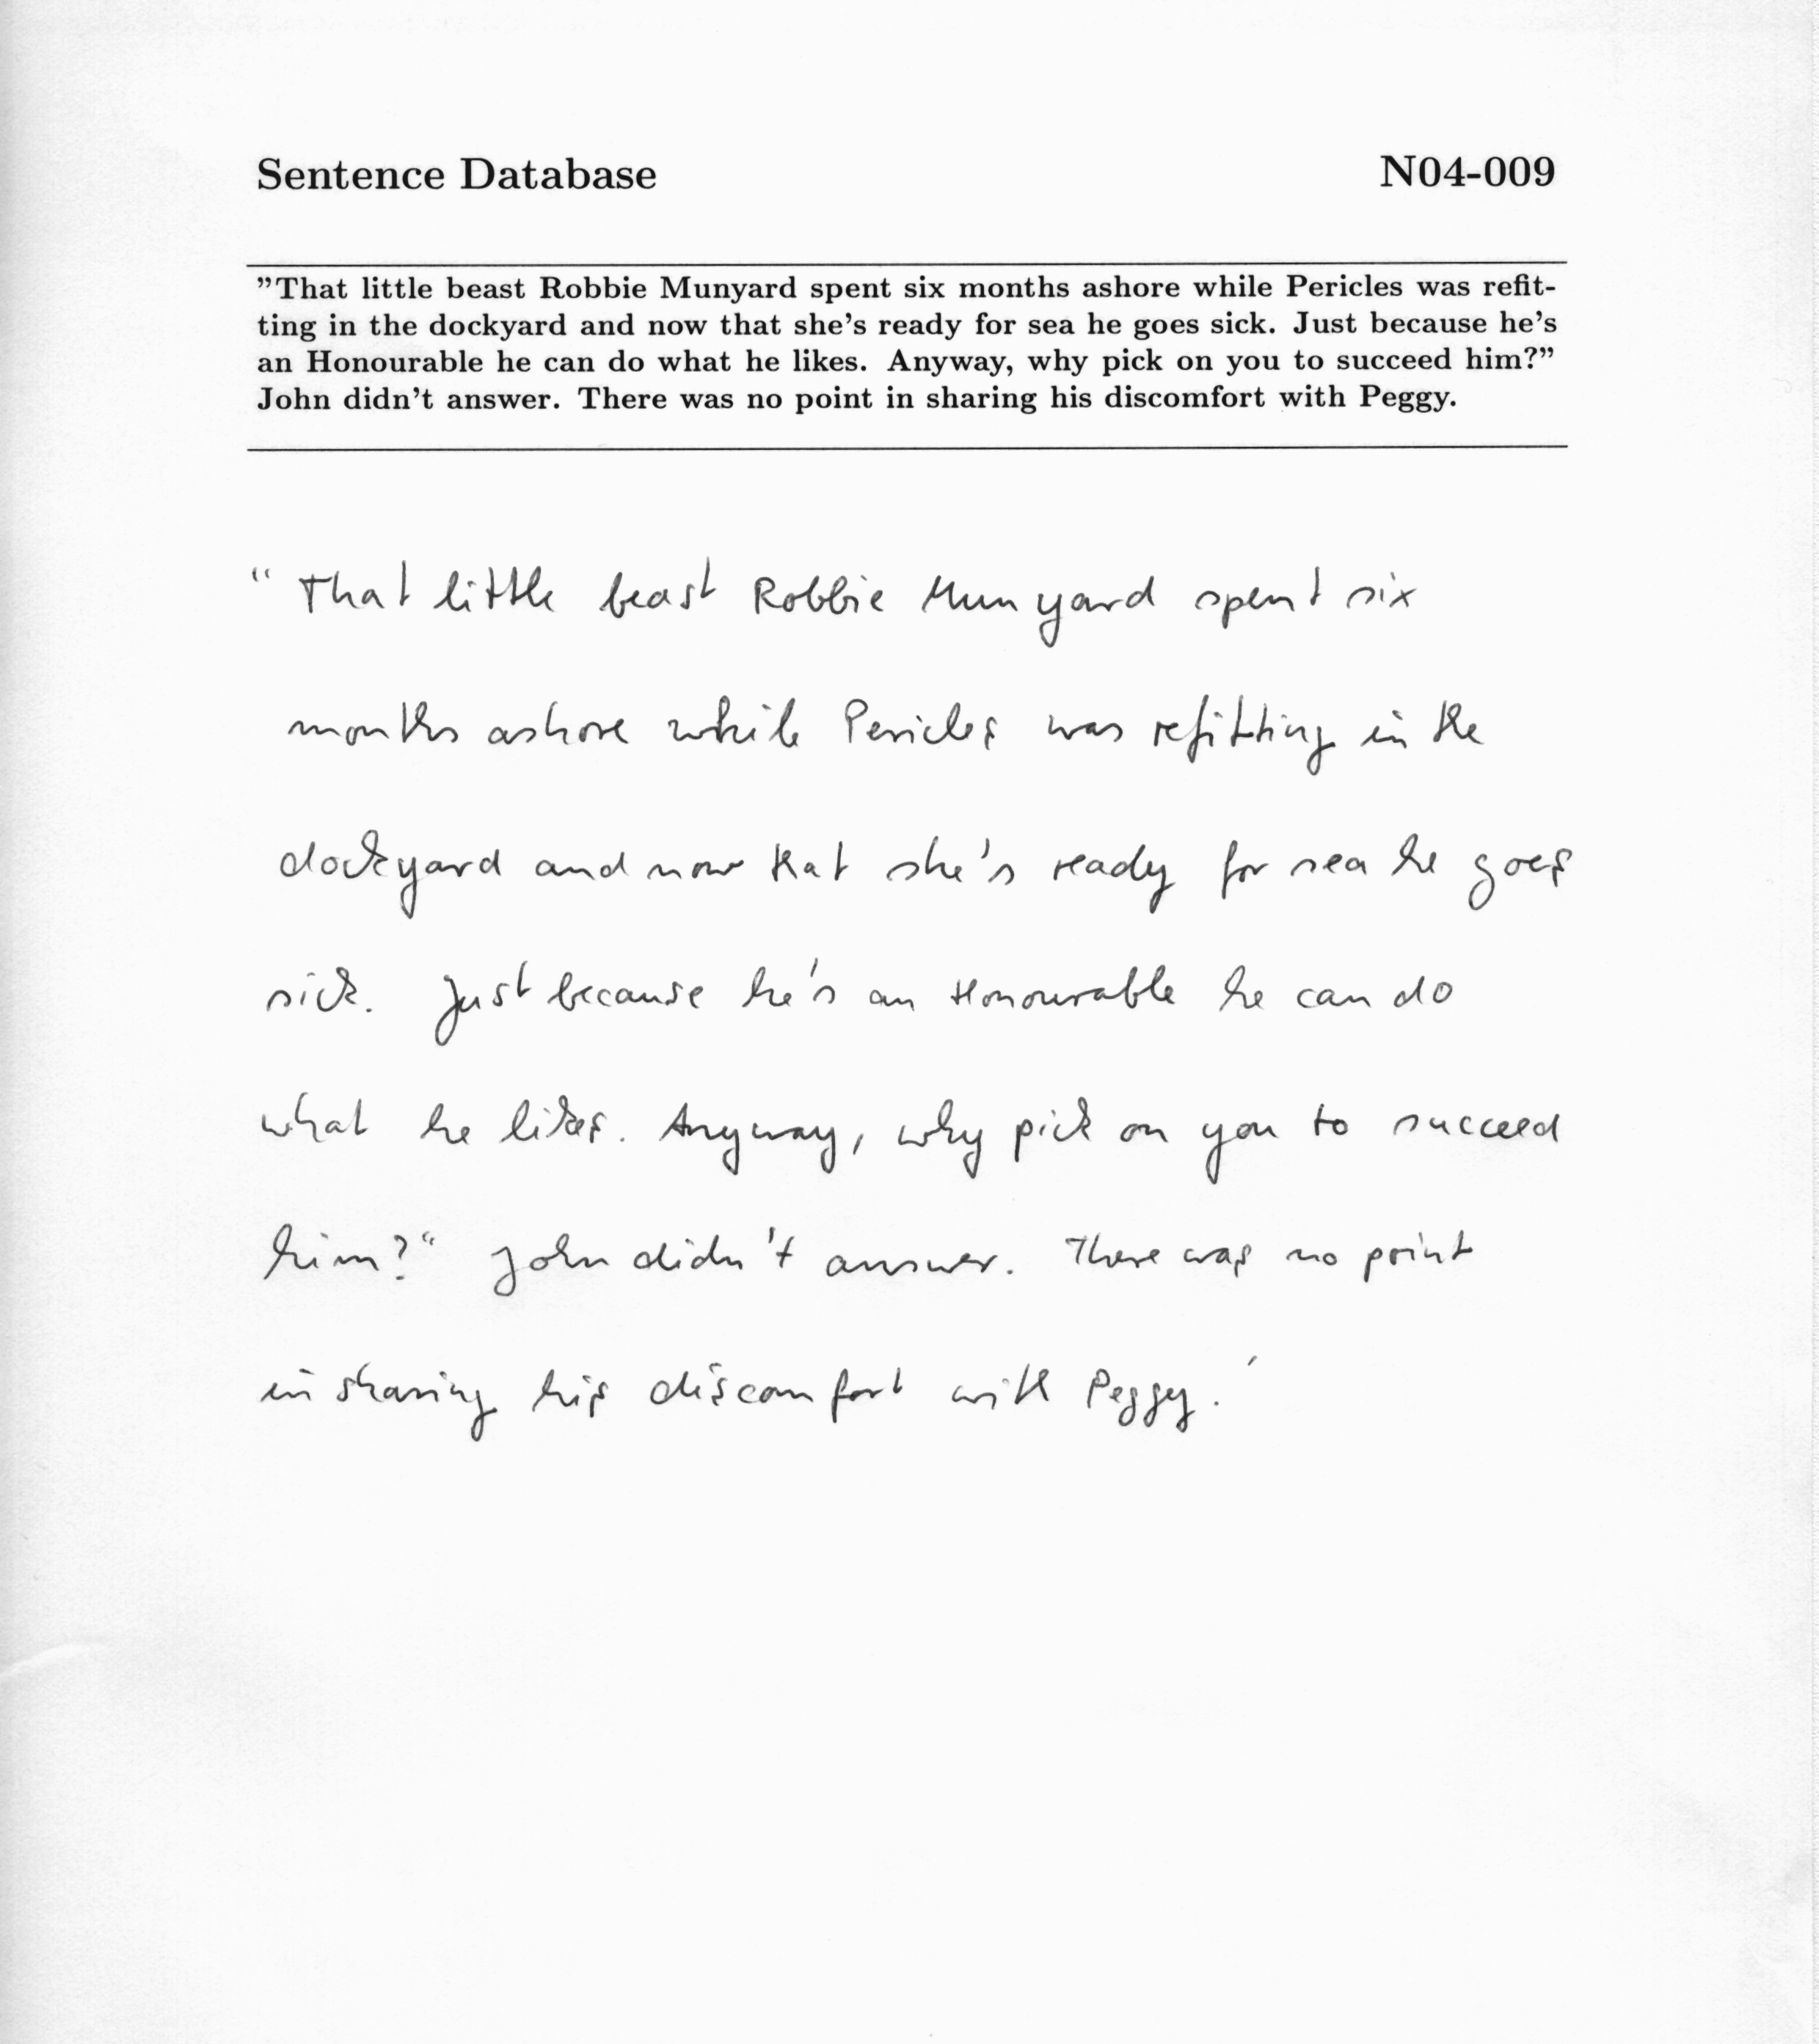 Sentence Database N04-009
"That little beast Robbie Munyard spent six months ashore while Pericles was refit-
ting in the dockyard and now that she's ready for sea he goes sick. Just because he's
an Honourable he can do what he likes. Anyway, why pick on you to succeed him?"
John didn't answer. There was no point in sharing his discomfort with Peggy.
"That little beast Robbie Munyard spent six
months ashore while Pericles was refitting in the
dockyard and now that she's ready for sea he goes
sick. Just because he's an Honourable he can do
what he likes. Anyway, why pick on you to succeed
him?" John didn't answer. There was no point
in sharing his discomfort with Peggy.